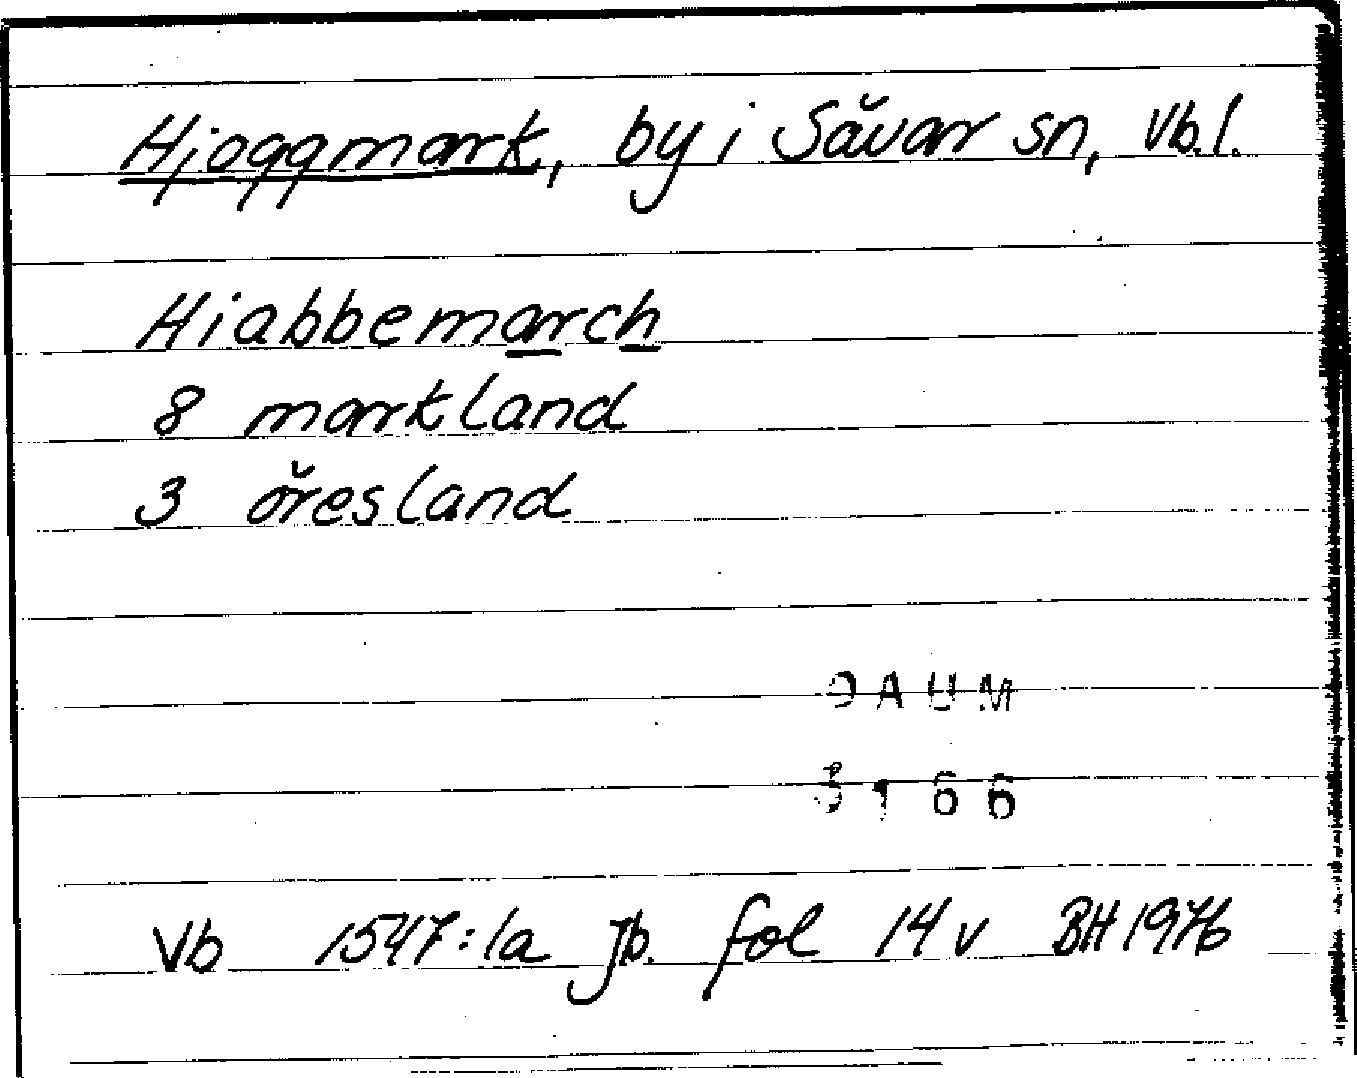 Hjoggmark, by i Sävar sn, Vb.l.
Hiabbemarch
8 markland
3 öresland
DAUM
3166
Vb 1547:1a jb. fol 14 v BH 1976